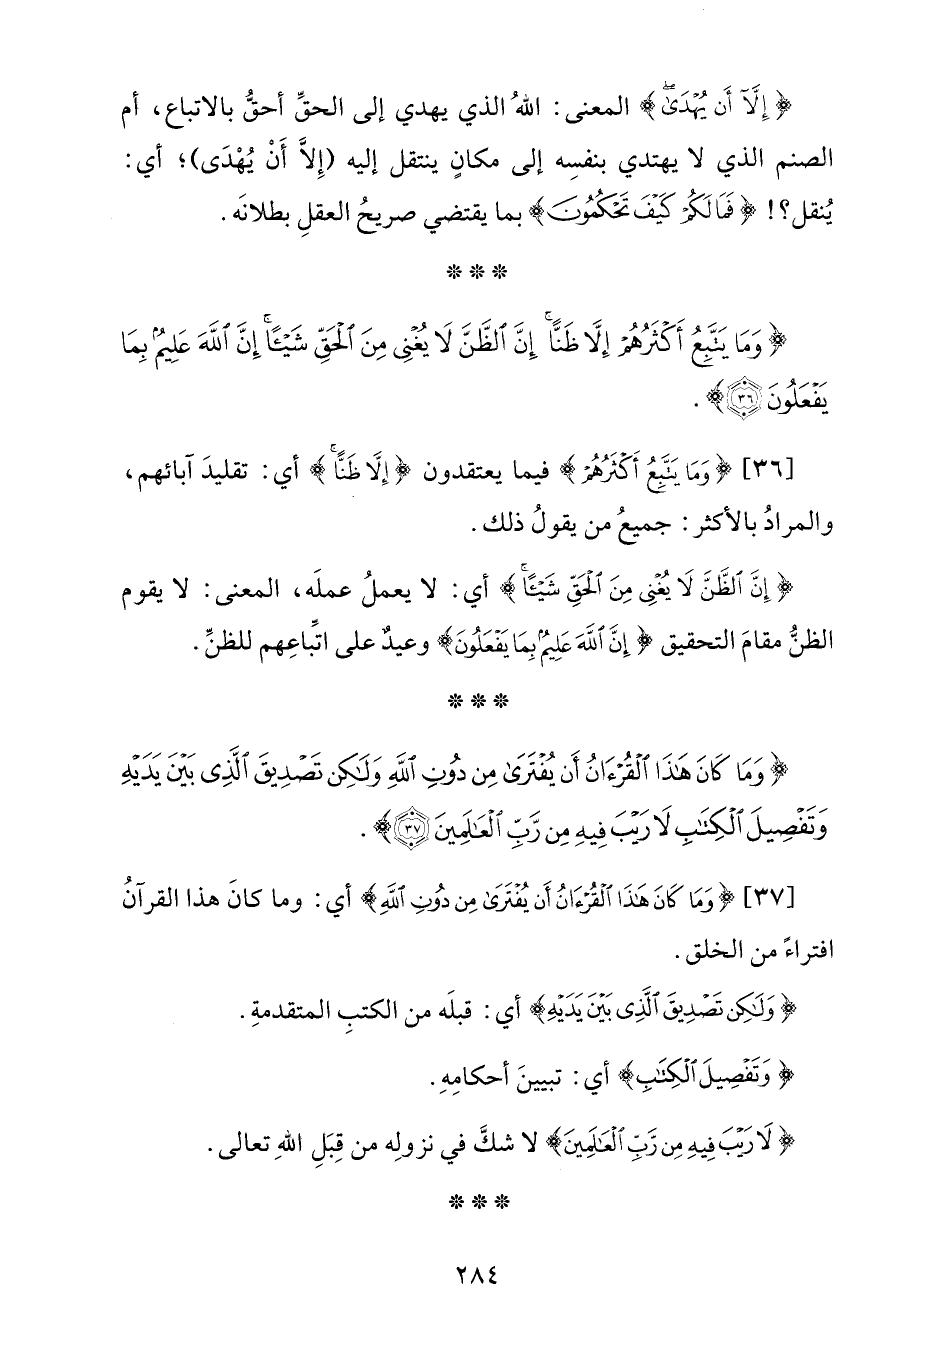 ﴿إِلَّآ أَن يُهْدَىٰۖ﴾ المعنى: اللهُ الذي يهدي إلى الحقِّ أحقُّ بالاتباع، أم
الصنم الذي لا يهتدي بنفسِه إلى مكانٍ ينتقل إليه (إِلاَّ أَنْ يُهْدَى)؛ أي:
يُنقل؟! ﴿فَمَا لَكُمْ كَيْفَ تَحْكُمُونَ﴾ بما يقتضي صريحُ العقلِ بطلانَه.
* * *
﴿وَمَا يَتَّبِعُ أَكْثَرُهُمْ إِلَّا ظَنًّاۚ إِنَّ ٱلظَّنَّ لَا يُغْنِى مِنَ ٱلْحَقِّ شَيْـًٔاۚ إِنَّ ٱللَّهَ عَلِيمٌۢ بِمَا
يَفْعَلُونَ ۝٣٦﴾.
[٣٦] ﴿وَمَا يَتَّبِعُ أَكْثَرُهُمْ﴾ فيما يعتقدون ﴿إِلَّا ظَنًّاۚ﴾ أي: تقليدَ آبائهم،
والمرادُ بالأكثر: جميعُ من يقولُ ذلك.
﴿إِنَّ ٱلظَّنَّ لَا يُغْنِى مِنَ ٱلْحَقِّ شَيْـًٔاۚ﴾ أي: لا يعملُ عملَه، المعنى: لا يقوم
الظنُّ مقامَ التحقيق ﴿إِنَّ ٱللَّهَ عَلِيمٌۢ بِمَا يَفْعَلُونَ﴾ وعيدٌ على اتِّباعِهم للظنِّ.
* * *
﴿وَمَا كَانَ هَٰذَا ٱلْقُرْءَانُ أَن يُفْتَرَىٰ مِن دُونِ ٱللَّهِ وَلَٰكِن تَصْدِيقَ ٱلَّذِى بَيْنَ يَدَيْهِ
وَتَفْصِيلَ ٱلْكِتَٰبِ لَا رَيْبَ فِيهِ مِن رَّبِّ ٱلْعَٰلَمِينَ ۝٣٧﴾.
[٣٧] ﴿وَمَا كَانَ هَٰذَا ٱلْقُرْءَانُ أَن يُفْتَرَىٰ مِن دُونِ ٱللَّهِ﴾ أي: وما كانَ هذا القرآنُ
افتراءً من الخلق.
﴿وَلَٰكِن تَصْدِيقَ ٱلَّذِى بَيْنَ يَدَيْهِ﴾ أي: قبلَه من الكتبِ المتقدمةِ.
﴿وَتَفْصِيلَ ٱلْكِتَٰبِ﴾ أي: تبيينَ أحكامِهِ.
﴿لَا رَيْبَ فِيهِ مِن رَّبِّ ٱلْعَٰلَمِينَ﴾ لا شكَّ في نزولِه من قِبَلِ اللهِ تعالى.
* * *
٢٨٤